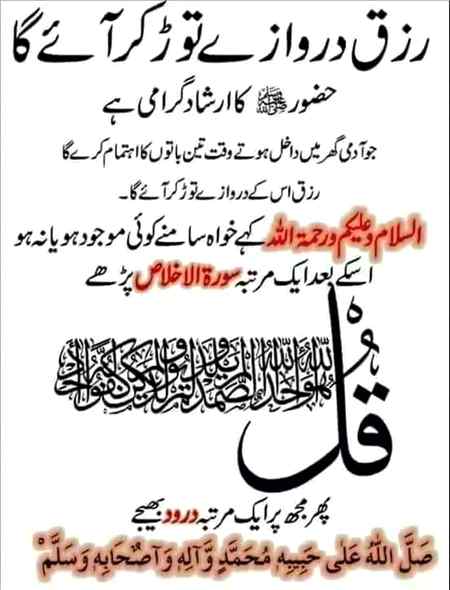 رزق دروازے توڑ کر آئے گا
حضور ﷺ کا ارشاد گرامی ہے
جو آدمی گھر میں داخل ہوتے وقت تین باتوں کا اہتمام کرے گا
رزق اس کے دروازے توڑ کر آئے گا۔
السلام وعلیکم ورحمۃ اللہ کہے خواہ سامنے کوئی موجود ہو یا نہ ہو
اسکے بعد ایک مرتبہ سورۃ الاخلاص پڑھے
قُلْ هُوَ اللّٰهُ أَحَدٌ اللّٰهُ الصَّمَدُ لَمْ يَلِدْ وَلَمْ يُولَدْ وَلَمْ يَكُنْ لَهُ كُفُوًا أَحَدٌ
پھر مجھ پر ایک مرتبہ درود بھیجے
صَلَّ اللهُ عَلٰى حَبِيْبِهٖ مُحَمَّدٍ وَّاٰلِهٖ وَاَصْحَابِهٖ وَسَلَّمْ